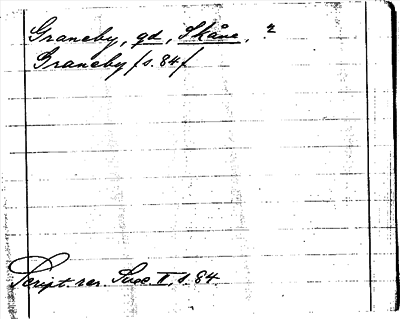 Graneby, gd, Skåne, ?
Graneby /s. 84/
Script. rer. Svec. II, s. 84.